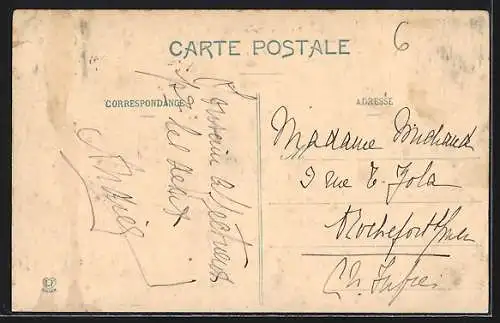 6
CARTE POSTALE
CORRESPONDANCE
ADRESSE
Souvenir affectueux
Madame Michaud
9 rue E. Zola
Rochefort s/mer
Ch. Infre